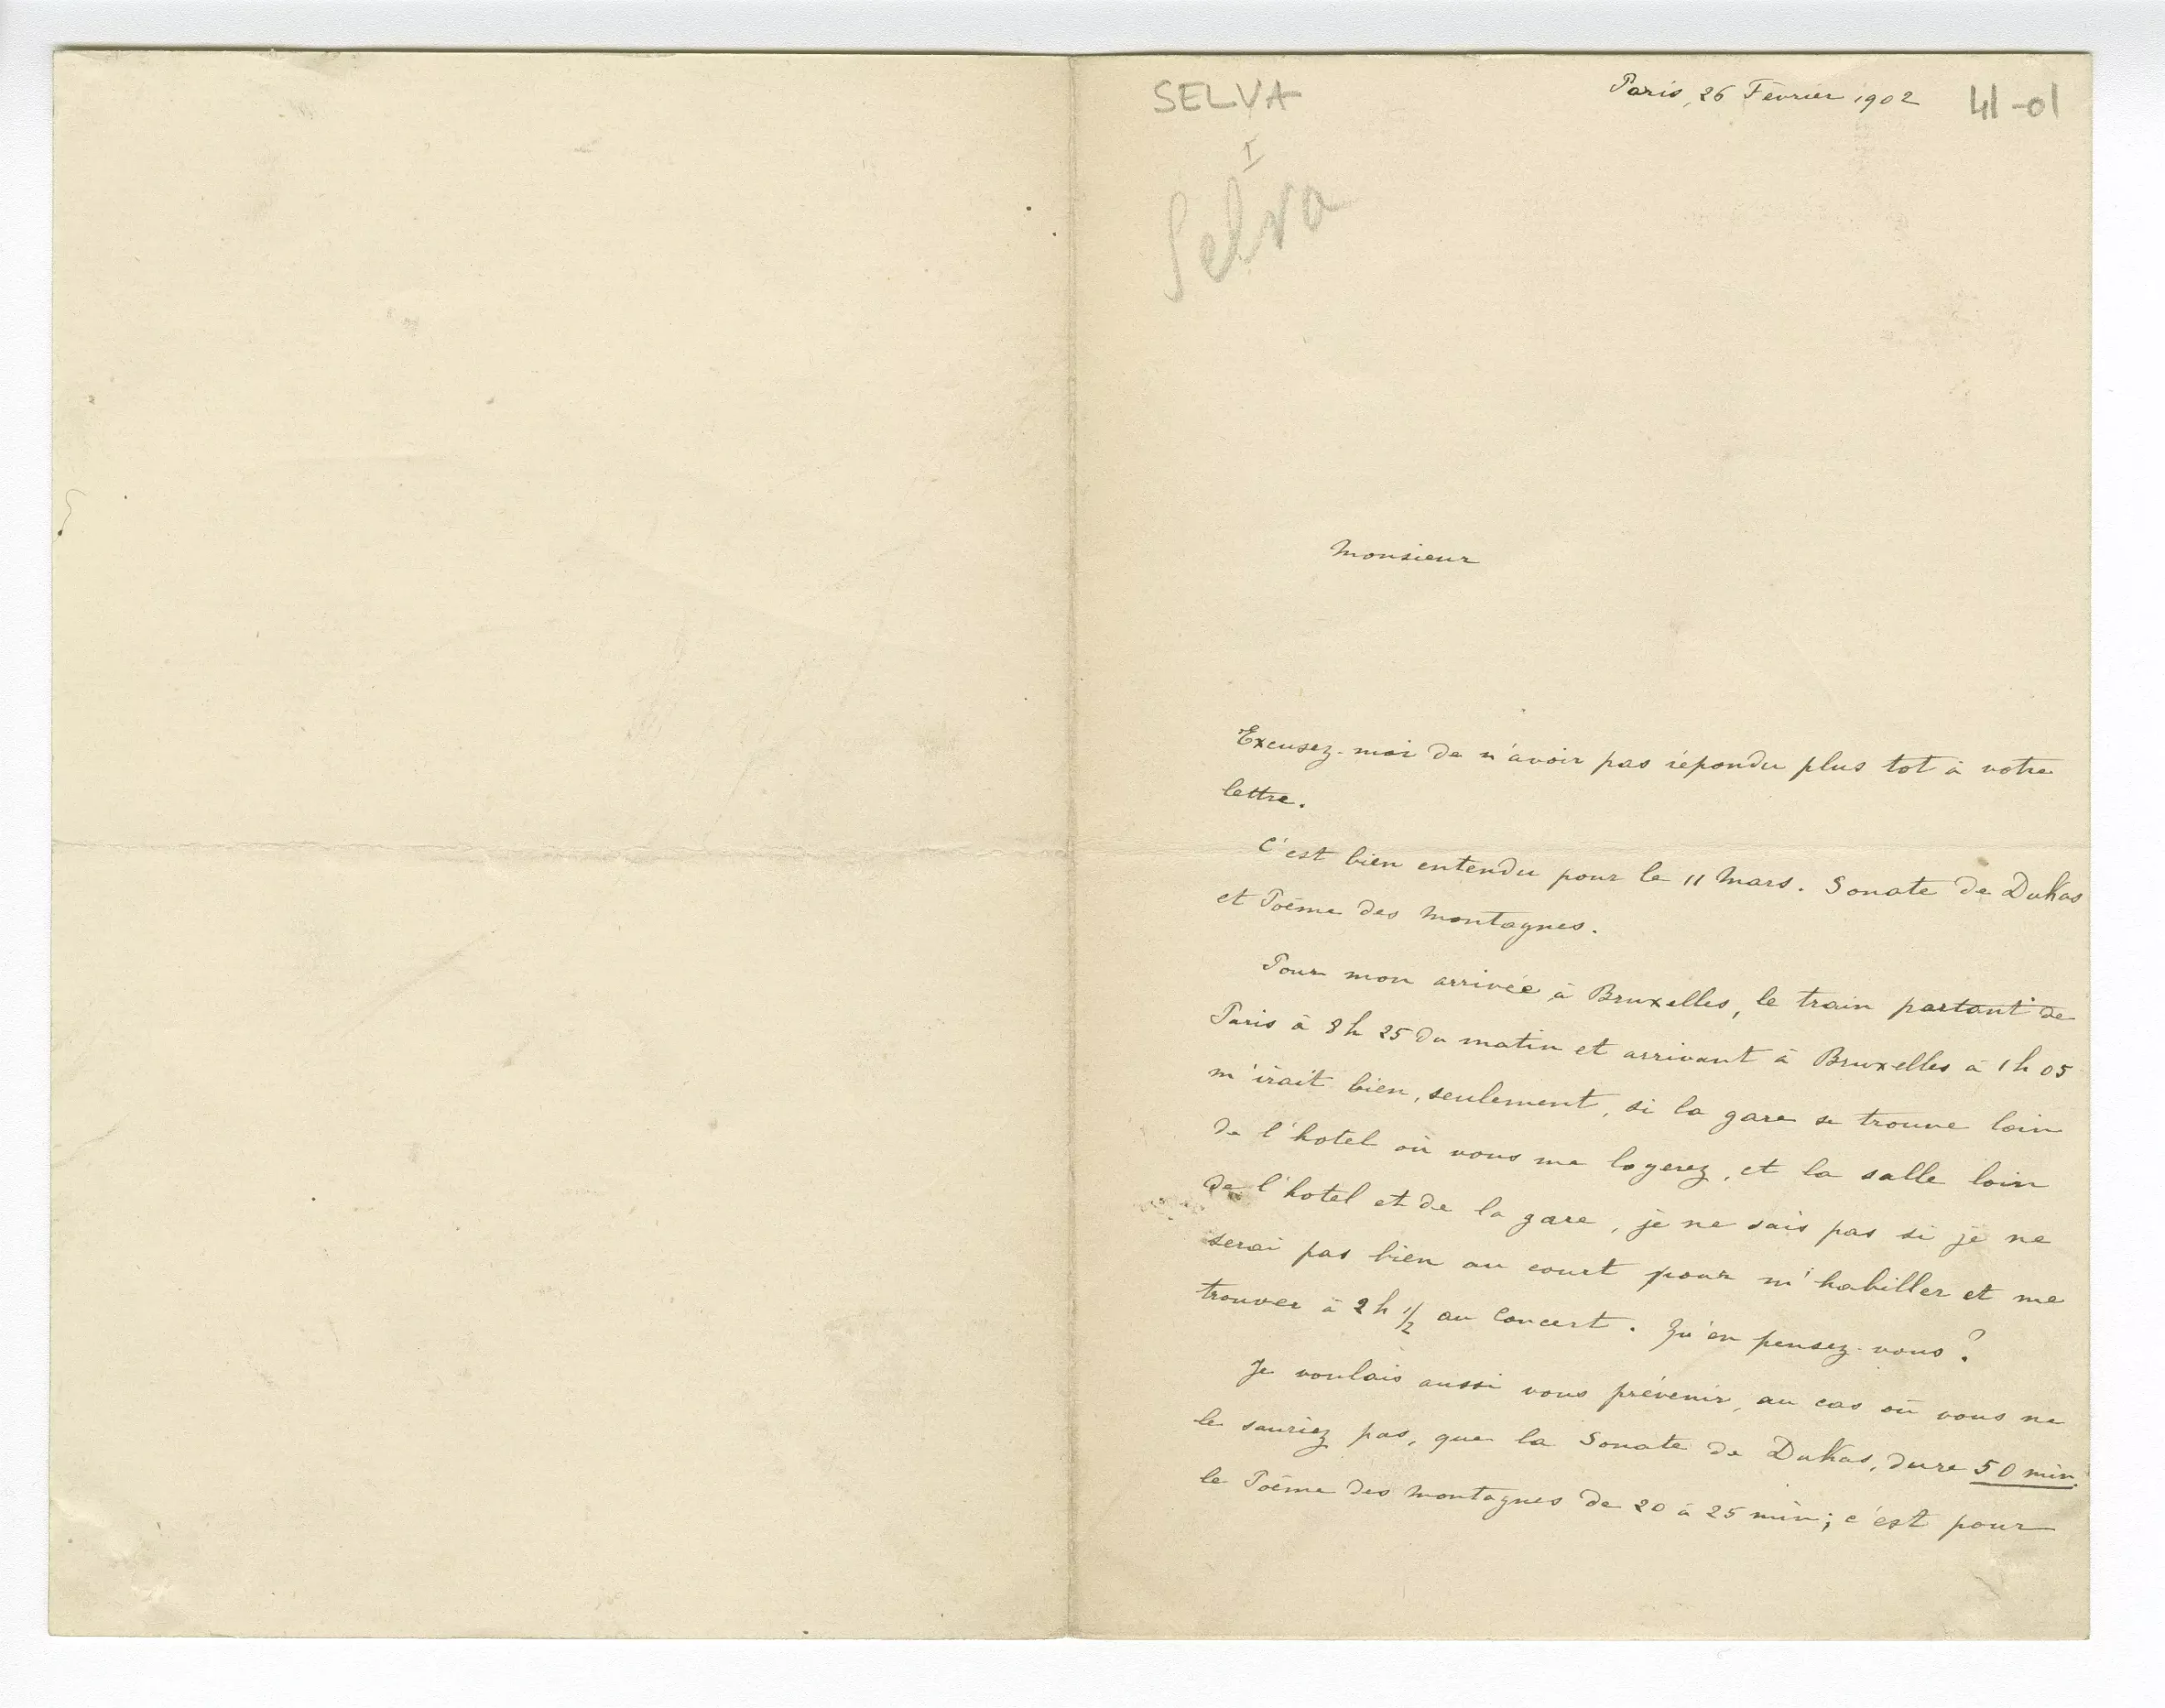 SELVA
Paris, 26 Février 1902
41-01
I
Selva
Monsieur
Excusez-moi de n'avoir pas répondu plus tot à votre
lettre.
C'est bien entendu pour le 11 Mars. Sonate de DuKas
et Poëme des Montagnes.
Pour mon arrivée à Bruxelles, le train partant de
Paris à 8h 25 du matin et arrivant à Bruxelles à 1h 05
m'irait bien, seulement, si la gare se trouve loin
de l'hotel où vous me logerez, et la salle loin
de l'hotel et de la gare, je ne sais pas si je ne
serai pas bien au court pour m'habiller et me
trouver à 2h 1/2 au Concert. Qu'en pensez-vous?
Je voulais aussi vous prévenir, au cas où vous ne
le sauriez pas, que la Sonate de DuKas, dure 50 min.
le Poëme des Montagnes de 20 à 25 min; c'est pour